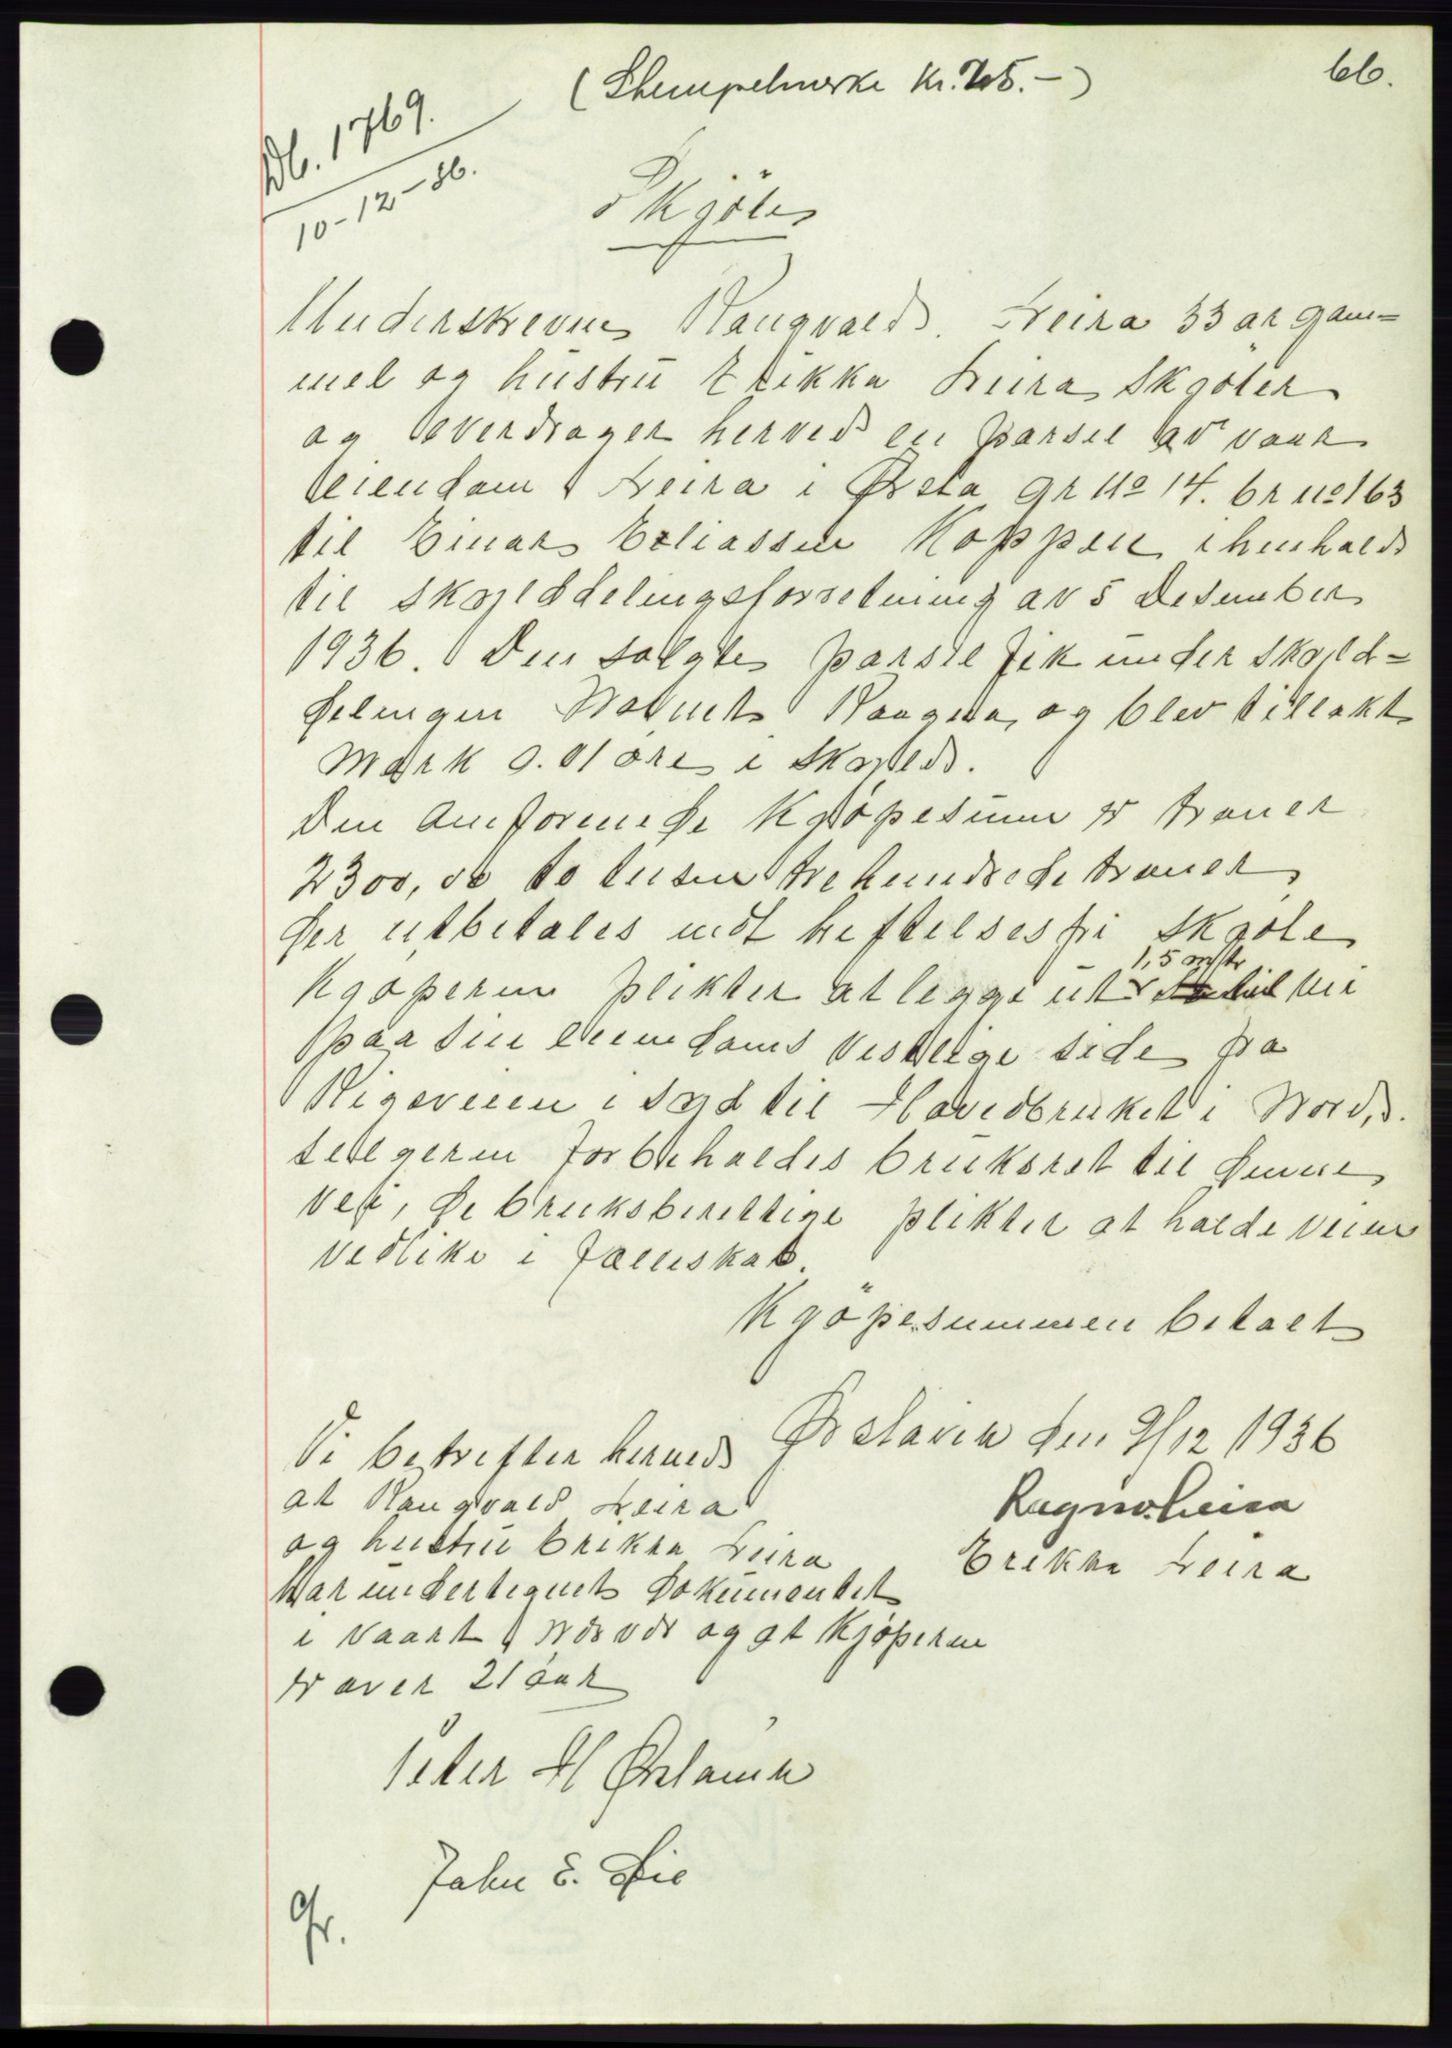 66.
(Stempelmerke kr. 25.-)
Db. 1769.
10-12-36.
Skjöte
Underskrevne Rangvald Leira 33 ar gam=
mel og hustru Erikka Leira skjøter
og overdrager herved en parsel av vaar
eiendom Leira i Ørsta gr no 14. br no 163
til Einar Eliassen Koppen i henhold
til skylddelingsforretning av 5 Desember
1936. Den solgte parsel fik under skyld=
delingen navnet Haagen og blev tillakt
Mark 0.01 øre i skyld.
Den omforenede Kjøpesum er kroner
2300,00 to tusen trehundrede kroner
der utbetales mot heftelsesfri skjøte
1,5 mtr
Kjøperen plikter at legge ut vei
paa sin eiendoms vestlige side fra
Rigsveien i syd til Hovedbruket i Nord,
selgeren forbeholdes bruksret til denne
vei, de bruksberettige plikter at holde veien
vedlike i fælleskab.
Kjöpesummen betalt
Ørstavik den 9/12 1936
Vi bekrefter herved
at Rangvald Leira
og hustru Erikka Leira
har undertegnet dokumentet
i vaart nærvær og at kjøperen
er over 21 aar
Ragnv. Leira
Erikka Leira
Peter H Ørstavik
John E. Lie
Gr.